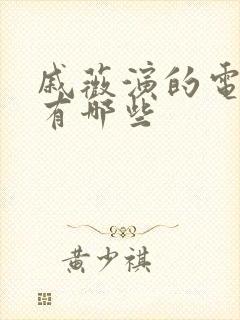 戚薇演的電
有哪些
黄少祺